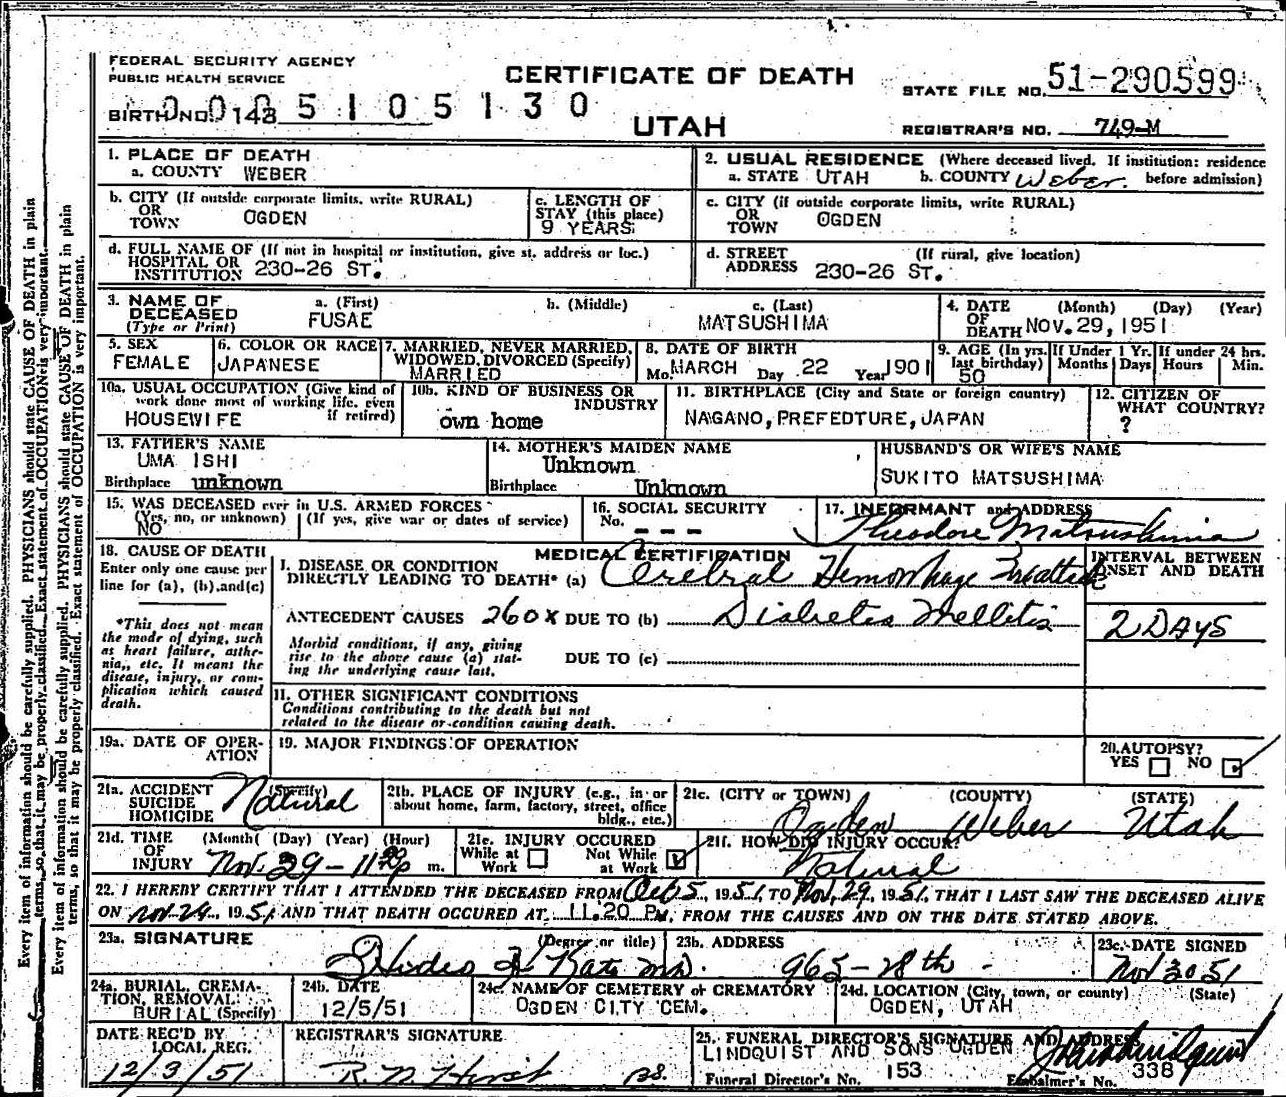 FEDERAL SECURITY AGENCY
PUBLIC HEALTH SERVICE
CERTIFICATE OF DEATH
UTAH
STATE FILE NO. 51-290599
BIRTH NO. 143
0005105130
REGISTRAR'S NO. 749-M
1. PLACE OF DEATH
a. COUNTY WEBER
2. USUAL RESIDENCE (Where deceased lived. If institution: residence before admission)
a. STATE UTAH b. COUNTY Weber.
b. CITY (If outside corporate limits, write RURAL)
OR TOWN OGDEN
c. LENGTH OF STAY (this place)
9 YEARS
c. CITY (if outside corporate limits, write RURAL)
OR TOWN OGDEN
d. FULL NAME OF (If not in hospital or institution, give st. address or loc.)
HOSPITAL OR INSTITUTION 230-26 ST.
d. STREET ADDRESS (If rural, give location)
230-26 ST.
3. NAME OF DECEASED (Type or Print)
a. (First) b. (Middle) c. (Last)
FUSAE MATSUSHIMA
4. DATE OF DEATH (Month) (Day) (Year)
NOV. 29, 1951
5. SEX
FEMALE
6. COLOR OR RACE
JAPANESE
7. MARRIED, NEVER MARRIED, WIDOWED, DIVORCED (Specify)
MARRIED
8. DATE OF BIRTH
Mo. MARCH Day 22 Year 1901
9. AGE (In yrs. last birthday)
50
If Under 1 Yr. Months Days
If under 24 hrs. Hours Min.
10a. USUAL OCCUPATION (Give kind of work done most of working life, even if retired)
HOUSEWIFE
10b. KIND OF BUSINESS OR INDUSTRY
own home
11. BIRTHPLACE (City and State or foreign country)
NAGANO, PREFEDTURE, JAPAN
12. CITIZEN OF WHAT COUNTRY?
?
13. FATHER'S NAME
UMA ISHI
Birthplace unknown
14. MOTHER'S MAIDEN NAME
Unknown
Birthplace Unknown
HUSBAND'S OR WIFE'S NAME
SUKITO MATSUSHIMA
15. WAS DECEASED ever in U.S. ARMED FORCES
(Yes, no, or unknown) (If yes, give war or dates of service)
NO
16. SOCIAL SECURITY
No. - - -
17. INFORMANT and ADDRESS
Theodore Matsushima
18. CAUSE OF DEATH
Enter only one cause per line for (a), (b), and (c)
*This does not mean the mode of dying, such as heart failure, asthenia, etc. It means the disease, injury, or complication which caused death.
MEDICAL CERTIFICATION
I. DISEASE OR CONDITION
DIRECTLY LEADING TO DEATH* (a) Cerebral Hemorrhage
ANTECEDENT CAUSES 260X DUE TO (b) Diabetes Mellitis
Morbid conditions, if any, giving rise to the above cause (a) stating the underlying cause last.
DUE TO (c)
INTERVAL BETWEEN ONSET AND DEATH
2 DAYS
II. OTHER SIGNIFICANT CONDITIONS
Conditions contributing to the death but not related to the disease or condition causing death.
19a. DATE OF OPERATION
19. MAJOR FINDINGS OF OPERATION
20. AUTOPSY?
YES NO
21a. ACCIDENT SUICIDE HOMICIDE (Specify)
Natural
21b. PLACE OF INJURY (e.g., in or about home, farm, factory, street, office bldg., etc.)
21c. (CITY or TOWN) (COUNTY) (STATE)
Ogden Weber Utah
21d. TIME OF INJURY (Month) (Day) (Year) (Hour)
Nov. 29 - 11 20 p m.
21e. INJURY OCCURED
While at Work Not While at Work
21f. HOW DID INJURY OCCUR?
Natural
22. I HEREBY CERTIFY THAT I ATTENDED THE DECEASED FROM Oct 5, 1951, TO Nov. 29, 1951, THAT I LAST SAW THE DECEASED ALIVE
ON Nov. 29, 1951 AND THAT DEATH OCCURED AT 11.20 PM, FROM THE CAUSES AND ON THE DATE STATED ABOVE.
23a. SIGNATURE (Degree or title)
23b. ADDRESS
965-28th
23c. DATE SIGNED
Nov 30 51
24a. BURIAL, CREMATION, REMOVAL (Specify)
BURIAL
24b. DATE
12/5/51
24c. NAME OF CEMETERY or CREMATORY
OGDEN CITY CEM.
24d. LOCATION (City, town, or county) (State)
OGDEN, UTAH
DATE REC'D BY LOCAL REG.
12/3/51
REGISTRAR'S SIGNATURE
25. FUNERAL DIRECTOR'S SIGNATURE AND ADDRESS
LINDQUIST AND SONS OGDEN
Funeral Director's No. 153
Embalmer's No. 338
Every item of information should be carefully supplied. PHYSICIANS should state CAUSE OF DEATH in plain terms, so that it may be properly classified. Exact statement of OCCUPATION is very important.
Every item of information should be carefully supplied. PHYSICIANS should state CAUSE OF DEATH in plain terms, so that it may be properly classified. Exact statement of OCCUPATION is very important.